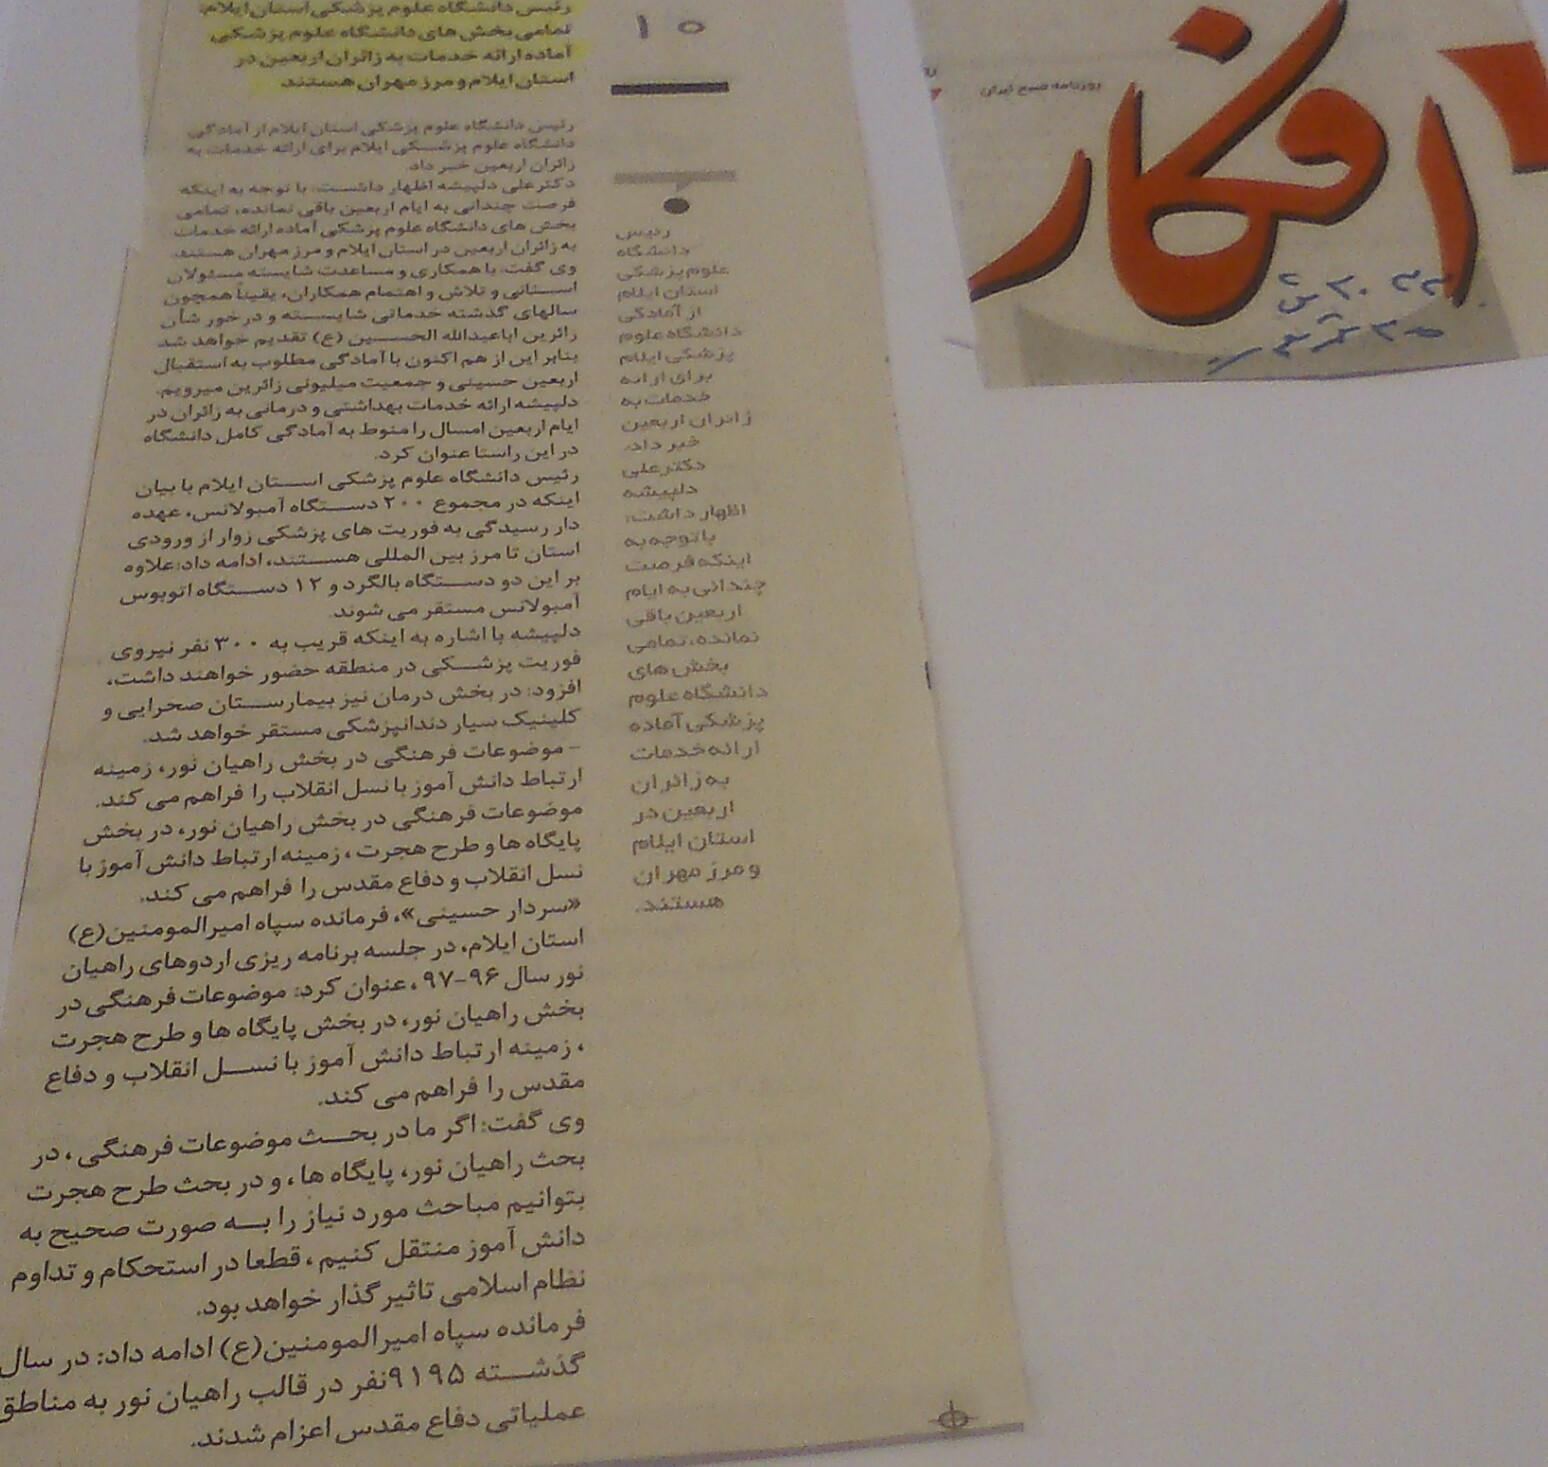 افکار
روزنامه صبح ایران
۱۵
رئیس دانشگاه علوم پزشکی استان ایلام:
تمامی بخش های دانشگاه علوم پزشکی
آماده ارائه خدمات به زائران اربعین در
استان ایلام و مرز مهران هستند
رئیس دانشگاه علوم پزشکی استان ایلام از آمادگی
دانشگاه علوم پزشکی ایلام برای ارائه خدمات به
زائران اربعین خبر داد.
دکتر علی دلپیشه اظهار داشت: با توجه به اینکه
فرصت چندانی به ایام اربعین باقی نمانده، تمامی
بخش های دانشگاه علوم پزشکی آماده ارائه خدمات
به زائران اربعین در استان ایلام و مرز مهران هستند.
وی گفت: با همکاری و مساعدت شایسته مسئولان
استانی و تلاش و اهتمام همکاران، یقیناً همچون
سالهای گذشته خدماتی شایسته و در خور شأن
زائرین اباعبدالله الحسین (ع) تقدیم خواهد شد
بنابر این از هم اکنون با آمادگی مطلوب به استقبال
اربعین حسینی و جمعیت میلیونی زائرین میرویم.
دلپیشه ارائه خدمات بهداشتی و درمانی به زائران در
ایام اربعین امسال را منوط به آمادگی کامل دانشگاه
در این راستا عنوان کرد.
رئیس دانشگاه علوم پزشکی استان ایلام با بیان
اینکه در مجموع ۲۰۰ دستگاه آمبولانس، عهده
دار رسیدگی به فوریت های پزشکی زوار از ورودی
استان تا مرز بین المللی هستند، ادامه داد: علاوه
بر این دو دستگاه بالگرد و ۱۲ دستگاه اتوبوس
آمبولانس مستقر می شوند.
دلپیشه با اشاره به اینکه قریب به ۳۰۰ نفر نیروی
فوریت پزشکی در منطقه حضور خواهند داشت،
افزود: در بخش درمان نیز بیمارستان صحرایی و
کلینیک سیار دندانپزشکی مستقر خواهد شد.
- موضوعات فرهنگی در بخش راهیان نور، زمینه
ارتباط دانش آموز با نسل انقلاب را فراهم می کند.
موضوعات فرهنگی در بخش راهیان نور، در بخش
پایگاه ها و طرح هجرت ، زمینه ارتباط دانش آموز با
نسل انقلاب و دفاع مقدس را فراهم می کند.
«سردار حسینی»، فرمانده سپاه امیرالمومنین(ع)
استان ایلام، در جلسه برنامه ریزی اردوهای راهیان
نور سال ۹۶-۹۷ ، عنوان کرد: موضوعات فرهنگی در
بخش راهیان نور، در بخش پایگاه ها و طرح هجرت
، زمینه ارتباط دانش آموز با نسل انقلاب و دفاع
مقدس را فراهم می کند.
وی گفت: اگر ما در بحث موضوعات فرهنگی ، در
بحث راهیان نور، پایگاه ها ، و در بحث طرح هجرت
بتوانیم مباحث مورد نیاز را به صورت صحیح به
دانش آموز منتقل کنیم ، قطعا در استحکام و تداوم
نظام اسلامی تاثیر گذار خواهد بود.
فرمانده سپاه امیرالمومنین(ع) ادامه داد: در سال
گذشته ۹۱۹۵نفر در قالب راهیان نور به مناطق
عملیاتی دفاع مقدس اعزام شدند.
رئیس
دانشگاه
علوم پزشکی
استان ایلام
از آمادگی
دانشگاه علوم
پزشکی ایلام
برای ارائه
خدمات به
زائران اربعین
خبر داد.
دکتر علی
دلپیشه
اظهار داشت:
با توجه به
اینکه فرصت
چندانی به ایام
اربعین باقی
نمانده، تمامی
بخش های
دانشگاه علوم
پزشکی آماده
ارائه خدمات
به زائران
اربعین در
استان ایلام
و مرز مهران
هستند.